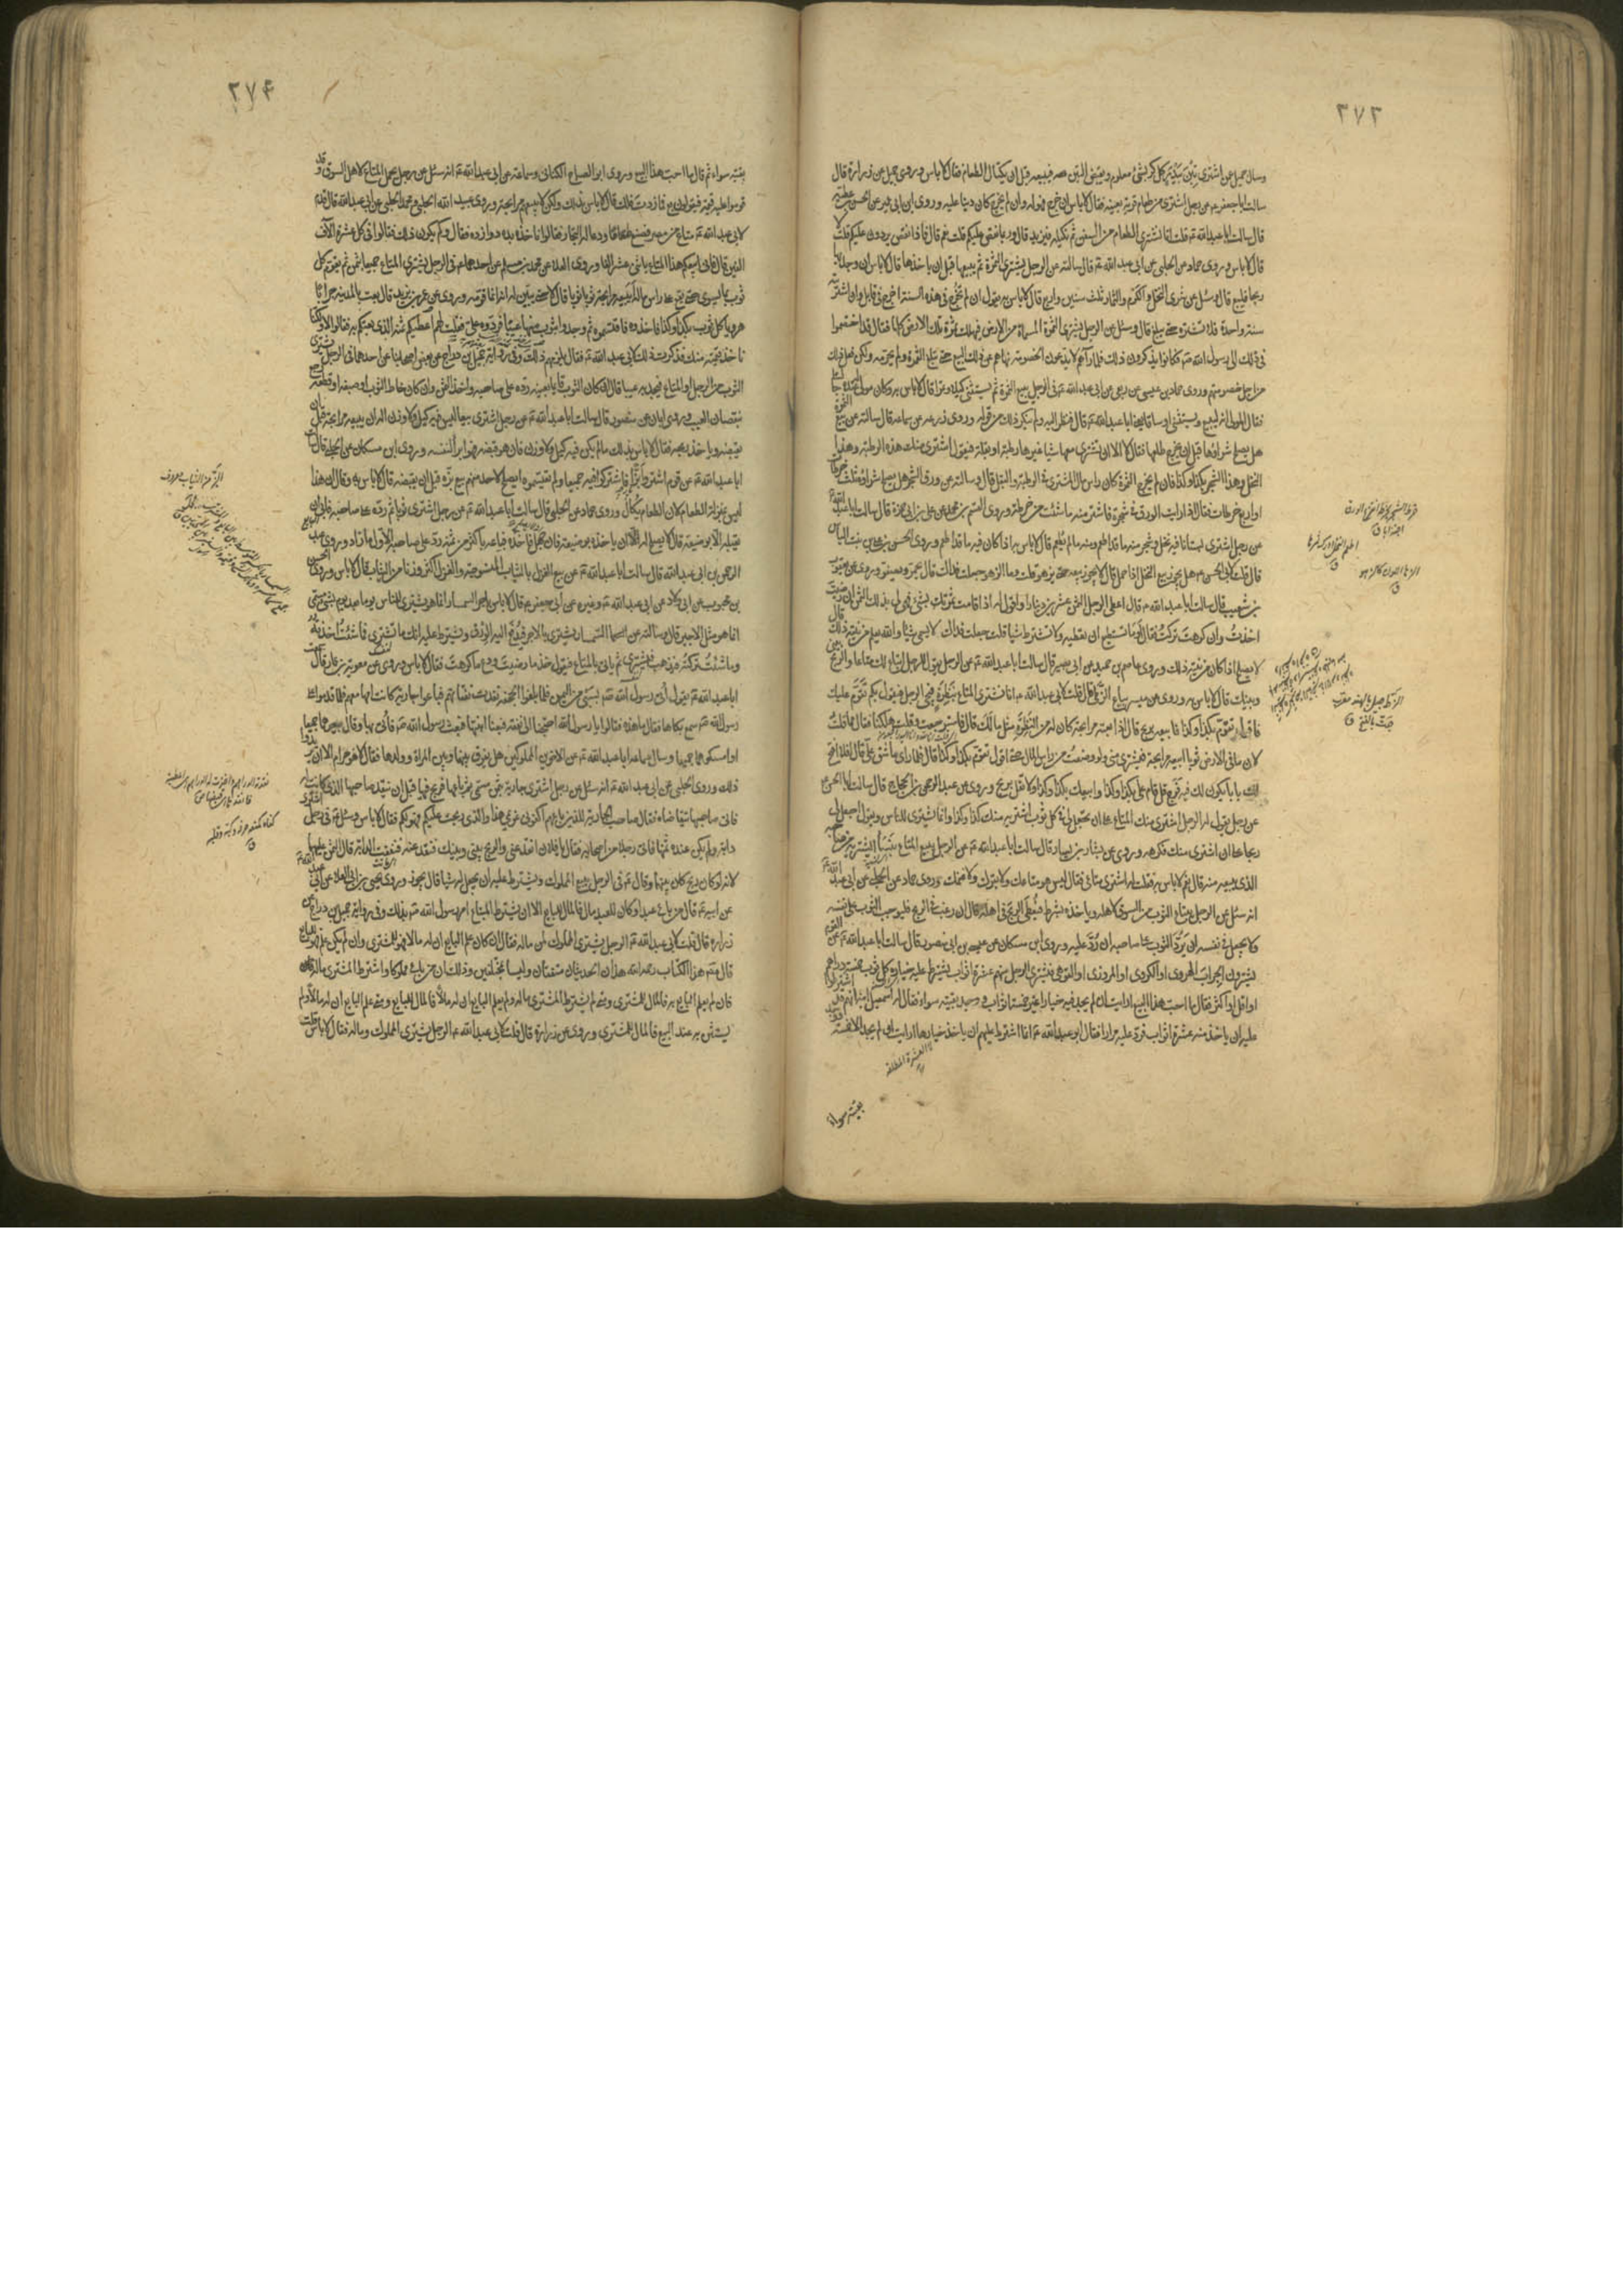 ۳۷۳
وسال جميل عن اشترى تبن بيدر كل كر بشئ معلوم ويقبض التبن فيبيعه قبل ان يكتال الطعام فقال لا باس وروى جميل عن زرارة قال
سالت ابا جعفر عن رجل اشترى من طعام قرية بعينها فقال لا باس ان خرج فهو له وان لم يخرج كان دينا عليه وروى ابن ابى عمير عن الحسن بن عطية
قال سالت ابا عبد الله ع قلت انا نشترى الطعام من السفن ثم نكيله فيزيد قال وربما نقص عليكم قلت نعم قال فاذا نقص يردون عليكم قلت لا
قال لا باس وروى حماد عن الحلبى عن ابى عبد الله ع قال سالته عن الرجل يشترى الثمرة ثم يبيعها قبل ان ياخذها قال لا باس ان وجد بها
ربحا فليبع قال وسئل عن شرى النخل والكرم والثمار ثلث سنين واربع قال لا باس به يقول ان لم تخرج فى هذه السنة اخرج فى قابل وان اشتريته
سنة واحدة فلا تشتره حتى يبلغ قال وسئل عن الرجل يشترى الثمرة المسماة من الارض فهلك ثمرة تلك الارض كلها فقال قد اختصموا
فى ذلك الى رسول الله ص فكانوا يذكرون ذلك فلما رآهم لا يدعون الخصومة نهاهم عن ذلك البيع حتى تبلغ الثمرة ولم يحرمه ولكن فعل ذلك
من اجل خصومتهم وروى حماد بن عيسى عن ربعى عن ابى عبد الله ع فى الرجل يبيع الثمرة ثم يستثنى كيلا وتمرا قال لا باس به وكان مولى له عنده جالسا
فقال المولى انه ليبيع ويستثنى اوساقا يعنى ابا عبد الله ع قال فنظر اليه ولم ينكر ذلك من قوله وروى زرعة عن سماعة قال سالته عن بيع الثمرة
هل يصلح شراؤها قبل ان يخرج طلعها فقال لا الا ان تشترى معها شيئا غيرها رطبة او بقلة فيقول اشترى منك هذه الرطبة وهذا
النخل وهذا الشجر بكذا وكذا فان لم يخرج الثمرة كان راس مال المشترى فى الرطبة والبقل قال وسالته عن ورق الشجر هل يصلح شراؤه ثلث خرطات
او اربع خرطات فقال اذا رايت الورق فى شجرة فاشتر منه ما شئت من خرطة وروى القسم بن محمد عن على بن ابى حمزة قال سالت ابا عبد الله ع
عن رجل اشترى بستانا فيه نخل وشجر منه ما قد اطعم ومنه ما لم يطعم قال لا باس به اذا كان فيه ما قد اطعم وروى الحسن بن على بن بنت الياس
قال قلت لابى الحسن ع هل يجوز بيع النخل اذا حمل قال لا يجوز بيعه حتى يزهو قلت وما الزهو جعلت فداك قال يحمر ويصفر وروى عن يعقوب
بن شعيب قال سالت ابا عبد الله ع قال اعطى الرجل الثمن عشرين دينارا واقول له اذا قامت ثمرتك بشئ فهى لى بذلك الثمن ان رضيت
اخذت وان كرهت تركت فقال اما تستطيع ان تعطيه ولا تشترط شيئا قلت جعلت فداك لا يسمى شيئا والله يعلم من نيته ذلك قال
لا يصلح اذا كان من نيته ذلك وروى عاصم بن حميد عن ابى بصير قال سالت ابا عبد الله ع عن الرجل يقول للرجل ابتاع لك متاعا والربح بينى
وبينك قال لا باس به وروى عن ميسر بياع الزطى قال قلت لابى عبد الله ع انا نشترى المتاع بنظرة فيجئ الرجل فيقول بكم تقوم عليك
فاقول تقوم بكذا وكذا فابيعه بربح قال اذا بعته مرابحة كان له من النظرة مثل ما لك قال فاسترجعت وقلت هلكنا فقال مما قلت
لان ما فى الارض ثوبا ابيعه مرابحة فيشترى منى ولو وضعت من راس المال حتى اقول تقوم بكذا وكذا قال فلما راى ما شق على قال افلا افتح
لك بابا يكون لك فيه فرج قل قام على بكذا وكذا وابيعك بكذا وكذا ولا تقل بربح وروى عن عبد الرحمن بن الحجاج قال سالت ابا الحسن ع
عن رجل يقول له الرجل اشترى منك المتاع على ان تجعل لى فى كل ثوب اشتريه منك كذا وكذا وانما يشترى للناس ويقول اجعل لى
ربحا على ان اشترى منك فكرهه وروى عن بشار بن يسار قال سالت ابا عبد الله ع عن الرجل يبيع المتاع بنسأ فيشتريه من صاحبه
الذى يبيعه منه قال نعم لا باس به فقلت له اشترى متاعى فقال ليس هو متاعك ولا بقرك ولا غنمك وروى حماد عن الحلبى عن ابى عبد الله ع
انه سئل عن الرجل يبتاع الثوب من السوق لاهله وياخذه بشرط فيعطى الربح فى اهله قال ان رغب فى الربح فليوجب الثوب على نفسه
ولا يجعل فى نفسه ان يرد الثوب على صاحبه ان رد عليه وروى ابن مسكان عن عيسى بن ابى منصور قال سالت ابا عبد الله ع عن القوم
يشترون الجراب الهروى او الكروى او المروزى او القوهى فيشترى الرجل منهم عشرة اثواب يشترط عليه خياره كل ثوب خمسة دراهم
او اقل او اكثر فقال ما احب هذا البيع ارايت ان لم يجد فيه خيارا غير خمسة اثواب ووجد بقيته سواء فقال له اسمعيل ابنه انهم قد اشترطوا
عليه ان ياخذ منه عشرة اثواب فرد عليه مرارا فقال ابو عبد الله ع انما اشترط عليهم ان ياخذ خيارها ارايت ان لم يجد الا خمسة
بقيته سواء
۲۷۴
بقيته سواء ثم قال ما احب هذا البيع وروى ابو الصباح الكنانى وسماعة عن ابى عبد الله ع انه سئل عن رجل يحمل المتاع لاهل السوق وقد
قوموا عليه قيمة فيقولون بع فما ازددت فلك قال لا باس بذلك ولكن لا يبيعهم مرابحة وروى عبيد الله الحلبى ومحمد الحلبى عن ابى عبد الله قال قدم
لابى عبد الله ع متاع من مصر فصنع طعاما ودعا له التجار فقالوا ناخذه بده دوازده فقال وكم يكون ذلك فقالوا فى كل عشرة الآف
الفين قال فانى ابيعكم هذا المتاع باثنى عشر الفا وروى العلا عن محمد بن مسلم عن احدهما ع فى الرجل يشترى المتاع جميعا بثمن ثم يقوم كل
ثوب بما يسوى حتى يقع على راس ماله يبيعه مرابحة ثوبا ثوبا قال لا حتى يبين له انما قومه وروى عن عمر بن يزيد قال بعت بالمدينة جرابا
هرويا كل ثوب بكذا وكذا فاخذوه فاقتسموه ثم وجدوا بثوب منها عيبا فردوه على فقلت لهم اعطيكم ثمنه الذى بعتكم به فقالوا لا ولكنا
ناخذ قيمته منك فذكرت ذلك لابى عبد الله ع فقال يلزمهم ذلك وفى رواية جميل بن دراج عن بعض اصحابنا عن احدهما فى الرجل يشترى
الثوب من الرجل او المتاع فيجد به عيبا قال ان كان الثوب قايما بعينه رده على صاحبه واخذ الثمن وان كان خاط الثوب او صبغه او قطعه رجع
بنقصان العيب وروى ابان عن منصور قال سالت ابا عبد الله ع عن رجل اشترى بيعا ليس فيه كيل ولا وزن اله ان يبيعه مرابحة قبل ان
يقبضه وياخذ ربحه فقال لا باس بذلك ما لم يكن فيه كيل ولا وزن فان هو قبضه فهو ابرأ لنفسه وروى ابن مسكان عن الحلبى قال سالت
ابا عبد الله ع عن قوم اشتروا بزا فاشتركوا فيه جميعا ولم يقتسموه ايصلح لاحد منهم بيع بزه قبل ان يقبضه قال لا باس به وقال ان هذا
ليس بمنزلة الطعام لان الطعام يكال وروى حماد عن الحلبى قال سالت ابا عبد الله ع عن رجل اشترى ثوبا ثم رده على صاحبه فابى ان
يقبله الا بوضيعة قال لا يصلح له ان ياخذه بوضيعة فان جهل فاخذه فباعه باكثر من ثمنه رد على صاحبه الاول ما زاد وروى عبد
الرحمن بن ابى عبد الله قال سالت ابا عبد الله ع عن بيع الغزل بالثياب المنسوجة والغزل اكثر وزنا من الثياب قال لا باس وروى الحسن
بن محبوب عن ابى ولاد عن ابى عبد الله ع وغيره عن ابى جعفر ع قال لا باس باجر السمسار انما هو يشترى للناس يوما بعد يوم بشئ مسمى
انما هو مثل الاجير قال وسالته عن السمسار يشترى بالاجر فيدفع اليه الورق ويشترط عليه انك ما تشترى فما شئت اخذته
وما شئت تركته فيذهب فيشترى ثم ياتى بالمتاع فيقول خذ ما رضيت ودع ما كرهت فقال لا باس وروى عن معوية بن عمار قال سمعت
ابا عبد الله ع يقول اتى رسول الله ص بسبى من اليمن فلما بلغوا الجحفة نفدت نفقاتهم فباعوا جارية كانت امها معهم فلما قدموا على
رسول الله ص سمع بكاها فقال ما هذه فقالوا يا رسول الله احتجنا الى نفقة فبعنا ابنتها فبعث رسول الله ص فاتى بها وقال بيعوهما جميعا
او امسكوهما جميعا وسال سماعة ابا عبد الله ع عن الاخوين المملوكين هل يفرق بينهما وبين المراة وولدها فقال لا هو حرام الا ان يريدوا
ذلك وروى الحلبى عن ابى عبد الله ع انه سئل عن رجل اشترى جارية بثمن مسمى ثم باعها فربح فيها قبل ان ينقد صاحبها الذى كانت له
فاتى صاحبها يتقاضاه فقال صاحب الجارية للذين باعهم اكفونى غريمى هذا والذى ربحت عليكم فهو لكم فقال لا باس وسئل ع فى رجل اشترى
دابة ولم يكن عنده ثمنها فاتى رجلا من اصحابه فقال يا فلان انقد عنى والربح بينى وبينك فنقد عنه فنفقت الدابة قال الثمن عليهما
لانه لو كان ربح كان بينهما وقال ع فى الرجل يبيع المملوك ويشترط عليه ان يجعل له شيئا قال يجوز وروى يحيى بن ابى العلا عن ابى عبد الله ع
عن ابيه ع قال من باع عبدا وكان للعبد مال فالمال للبايع الا ان يشترط المبتاع امر رسول الله ص بذلك وفى رواية جميل بن دراج عن
زرارة قال قلت لابى عبد الله ع الرجل يشترى المملوك لمن ماله فقال ان كان علم البايع ان له مالا فهو للمشترى وان لم يكن علم فهو للبايع
قال مصنف هذا الكتاب رحمه الله هذان الحديثان متفقان وليسا بمختلفين وذلك ان من باع مملوكا واشترط المشترى ماله
فان لم يعلم البايع به فالمال للمشترى ومتى لم يشترط المشترى ماله ولم يعلم البايع ان له مالا فالمال للبايع ومتى علم البايع ان له مالا ولم
يستثن به عند البيع فالمال للمشترى وروى عن زرارة قال قلت لابى عبد الله ع الرجل يشترى المملوك وماله فقال لا باس قلت